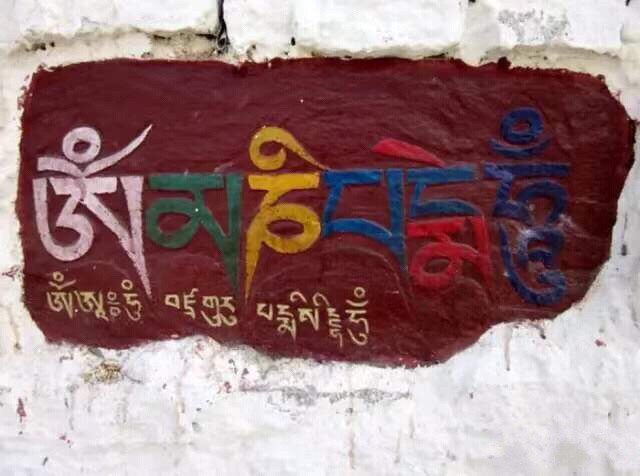 ཨོཾ་མ་ཎི་པདྨེ་ཧཱུྃ
ཨོཾ་ཨཱཿཧཱུྃ བཛྲ་གུ་རུ པདྨ་སིདྡྷི་ཧཱུྃ